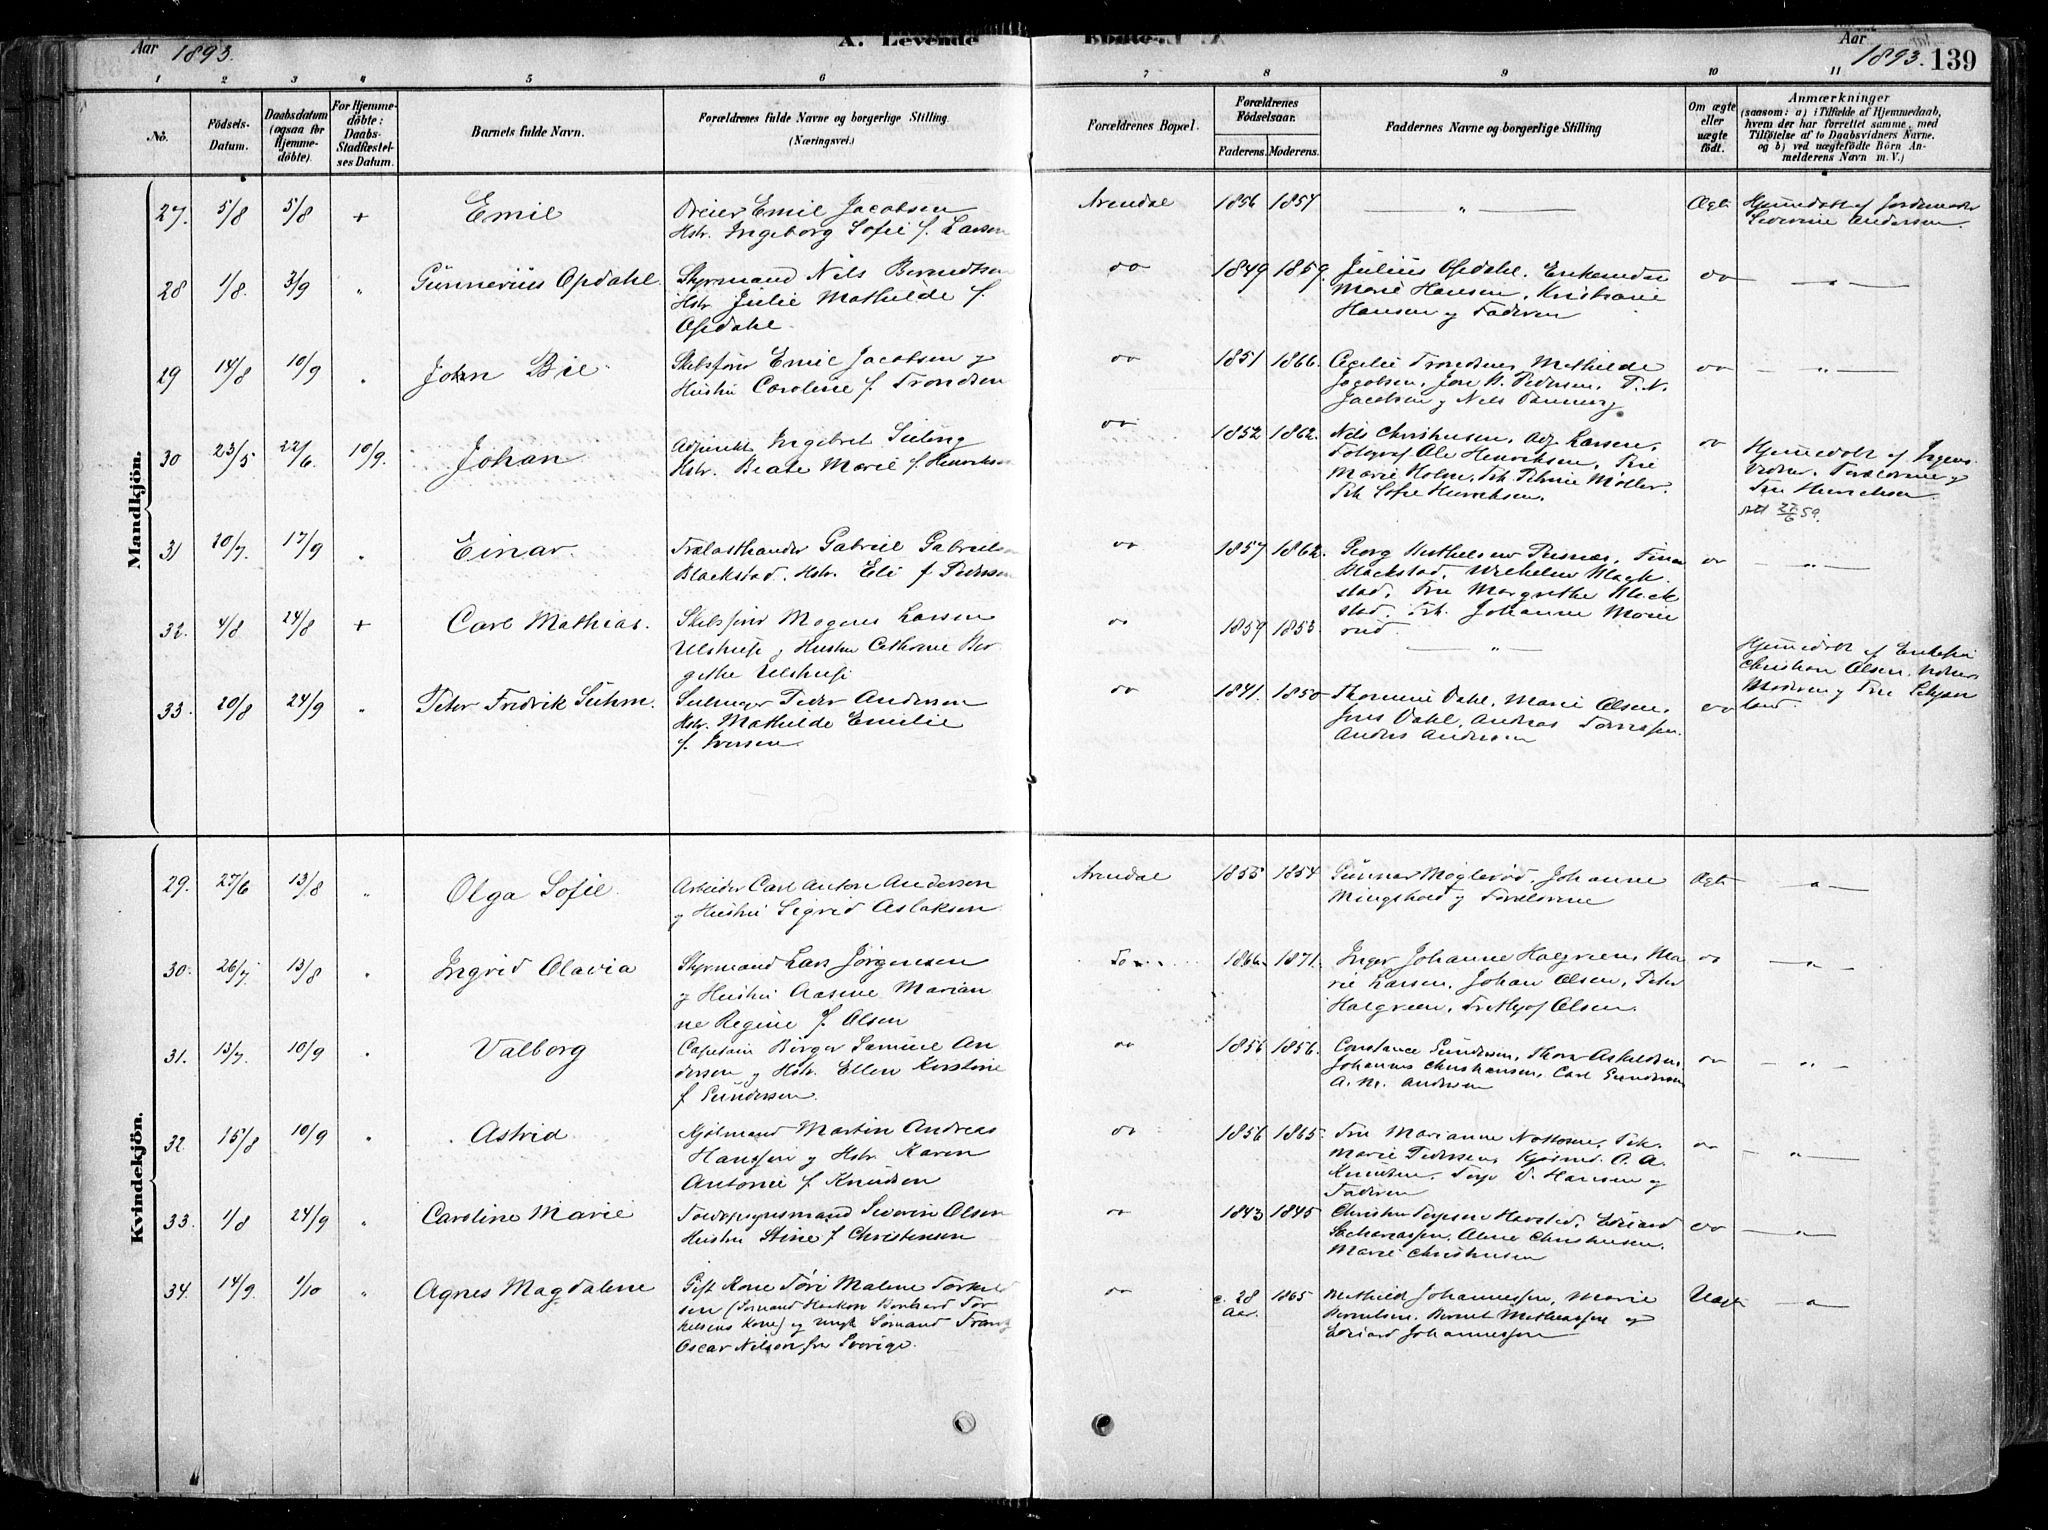 Aar 1893.
A. Levende
Aar 1893. 139
1 2 3 4 5 6 7 8 9 10 11
No.
Födsels-Datum.
Daabsdatum (ogsaa for Hjemme-döbte).
For Hjemme-döbte: Daabs-Stadfæstel-ses Datum.
Barnets fulde Navn.
Forældrenes fulde Navne og borgerlige Stilling.
(Næringsvei.)
Forældrenes Bopæl.
Forældrenes Födselsaar.
Faderens. Moderens.
Faddernes Navne og borgerlige Stilling
Om ægte eller uægte födt.
Anmærkninger
(saasom: a) i Tilfælde af Hjemmedaab,
hvem der har forrettet samme, med
Tilföielse af to Daabsvidners Navne,
og b) ved uægtefödte Börn An-
melderens Navn m. V.)
Mandkjön.
27. 5/8 5/8 + Emil
Dreier Emil Jacobsen
Hstr. Ingeborg Sofie f. Larsen
Arendal 1856 1854 — " — Ægte
Hjemmedøbt af Jordemoder
Severine Andersen.
28 1/8. 3/9 " Gunnerius Opdahl.
Styrmand Nils Berndtsen
Hstr Julie Mathilde f.
Opdahl.
oo 1849 1859.
Julius Opdahl.
Marie Hansen, Kristiane
Hansen og Faderen
oo — " —
29 14/8 10/9 " John Bie
Skibsfører Emil Jacobsen og
Hustru Caroline f. Trondsen
oo 1851 1866.
Cecilie Trondsen, Mathilde
Jacobsen, Pedersen, T. N.
Jacobsen og Nils
oo — " —
30 23/5 22/6. 10/9. Johan
Adjunkt Ingebret Suling
Hstr. Beate Marie f. Henriksen
oo 1852 1862.
Nils Christensen, Adj Larsen,
Fotograf Ole Henriksen, Frue
Marie Holm, Frk. Møller.
Frk Sofie Henriksen.
oo
Hjemmedøbt af
Vidner, Forældrene og
Fru Henriksen
27/6 59.
31 20/7. 17/9 " Einar.
Trælasthandler Gabriel Gabrielsen
Blackstad. Hstr. Eli f Pedersen
oo 1857 1862.
Georg
Blackstad, Wilhelm Black
stad, Fru Margrethe Black
stad, Frk. Johanne Marie
rud.
oo — " —
32. 4/8 24/8 + Carl Mathias.
Skibsfører Magnus Larsen
Ulstrup og Hustru Cathrine Bir
githe Ulstrup
oo 1859 1853 — " —
Hjemmedøbt af Enkefru
Christian Olsen, Vidner
Moderen og Fru
land.
33. 20/8 24/9 " Peter Fredrik Suhm.
Peder Andersen
Hstr. Mathilde Emilie
f. Iversen.
oo 1841. 1850
Thomine Dahl, Marie Olsen,
Jens Dahl, Andreas Tønnesen.
Anders Andersen
oo
Kvindekjön.
29. 27/6 13/8 " Olga Sofie.
Arbeider Carl Anton Anderson
og Hustru Sigrid Aslaksen
Arendal 1855 1854
Gunnar Møglerød, Johanne
Mingshold og Forældrene
Ægte — " —
30. 26/7. 13/8 " Ingrid Olavia
Styrmand Lars Jørgensen
og Hustru Aasine Marian
ne Regine f. Olsen
1866. 1871.
Inger Johanne Halgreen, Ma
rie Larsen, Johan Olsen, Peter
Halgreen, Frithjof Olsen.
oo — " —
31. 13/7. 10/9 " Valborg
Captain Børger Samuel An
dersen og Hstr. Ellen Kirstine
f Gundersen.
oo 1856 1856.
Constance Gundersen, Thora Askildsen,
Johannes Christiansen, Carl Gundersen
A. M. Andersen
oo — " —
32 15/8 10/9 " Astrid
Kjølmand Martin Andreas
Hanssen og Hstr. Karen
Antonie f. Knudsen
oo 1856 1865.
Fru Marianne Frk.
Marie Pedersen, A. A.
Knudsen. Terje D. Hansen og
Faderen
oo — " —
33. 1/8 24/9 " Caroline Marie
Toldopsynsmand Severin Olsen
Hustru Stine f Christensen
oo 1843 1845
Christen Eduard
Sachariassen, Aline Christensen.
Marie Christensen
oo — " —
34. 14/9. 1/10 " Agnes Magdalene
Gift Kone Tøri Malene Torkeld
sen (Sømand Haakon Bernhard Tor
kelsens Kone) og ungk Sømand Frantz
Oscar Nilson fra Sverige.
oo c. 28 Aar. 1865
Bethild Johannessen, Marie
Berntsen. Bernt Mathiassen og
Eduard Johannessen
Uægte — " —